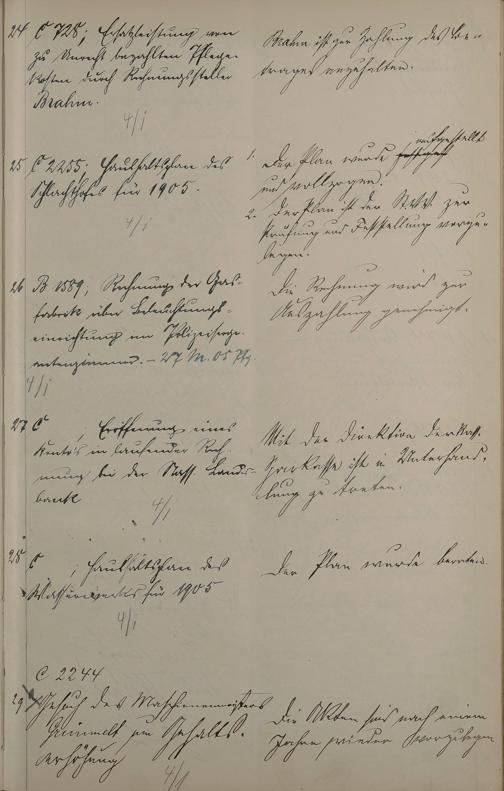 24 C 728; Ersatzleistung von
zu Unrecht bezahlten Pflege-
kosten durch Rechnungssteller
Brahm.
4/1
Brahm ist zur Zahlung des Be-
trages anzuhalten.
25 C 2255; Haushaltsplan des
Schlachthofes für 1905.
4/1
1. Der Plan wurde aufgestellt
und vollzogen.
2. Der Plan ist der St.V.V. zur
Prüfung und Feststellung vorzu-
legen.
26 B 1559; Rechnung der Gas-
fabrik über Beleuchtungs-
einrichtung im Polizeiserge-
antenzimmer. – 27 M. 05 Pfg.
4/1
Die Rechnung wird zur
Auszahlung genehmigt.
27 C ; Eröffnung eines
Konto's in laufender Rech-
nung bei der Nass. Landes-
bank
4/1
Mit der Direktion der Nass.
Sparkasse ist in Unterhand-
lung zu treten.
28 C ; Haushaltsplan des
Wasserwerks für 1905
4/1
Der Plan wurde beraten.
C 2244
29 Gesuch des Maschinenmeisters
um Gehalts-
erhöhung
4/1
Die Akten sind nach einem
Jahre wieder vorzulegen